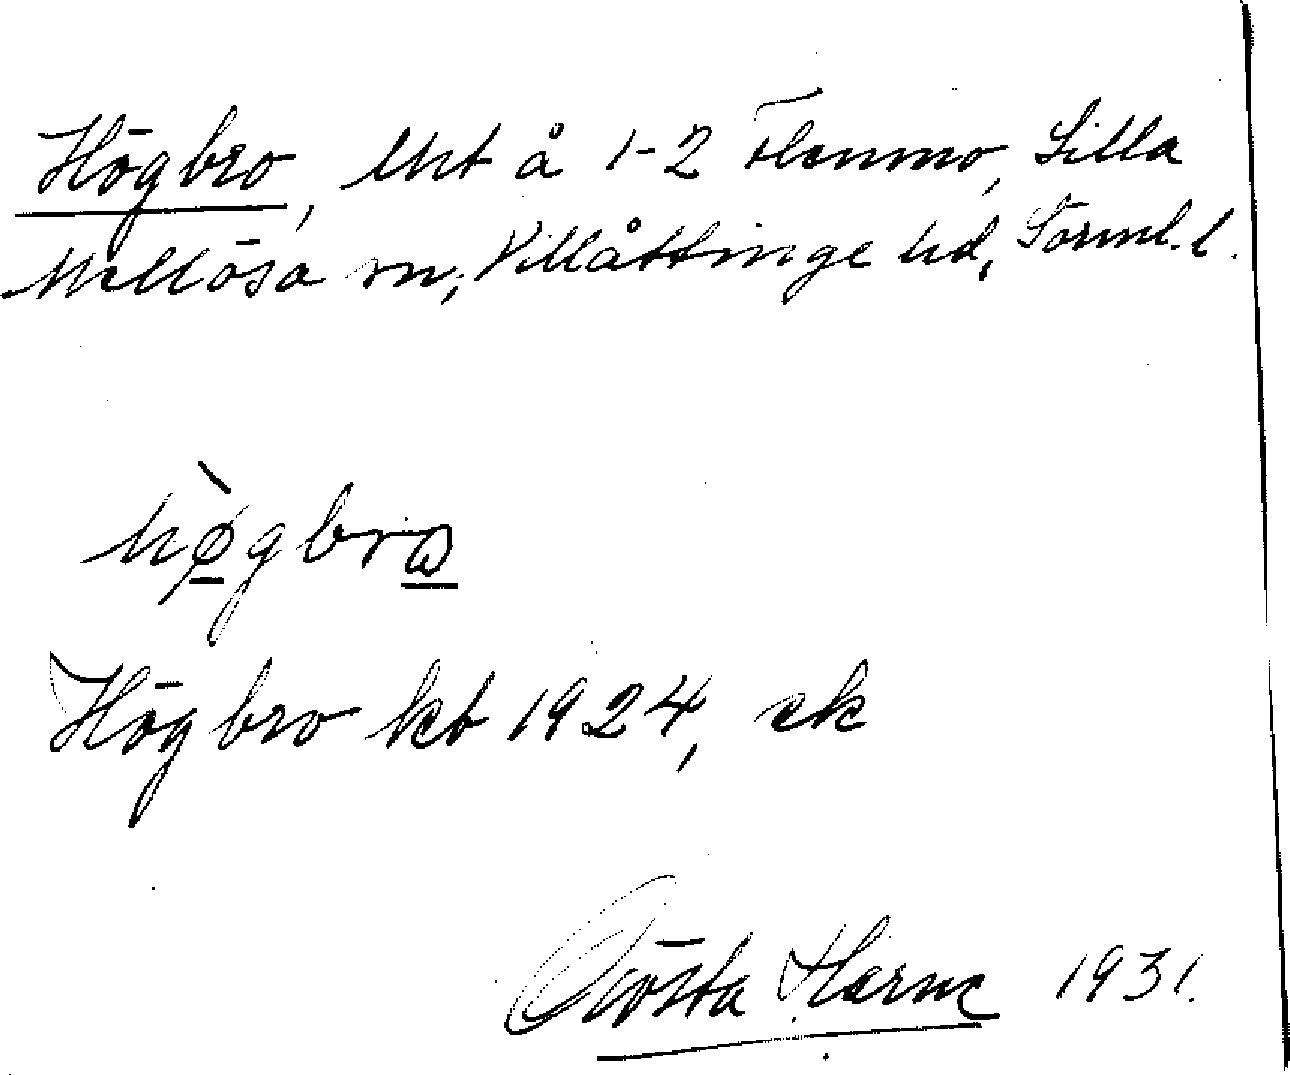 Högbro, lht å 1-2 Flenmo, Lilla
Mellösa sn, Villåttinge hd, Sörml. l.
hø̀gbro
Högbro kb 1924, ek
Gösta Harne 1931.